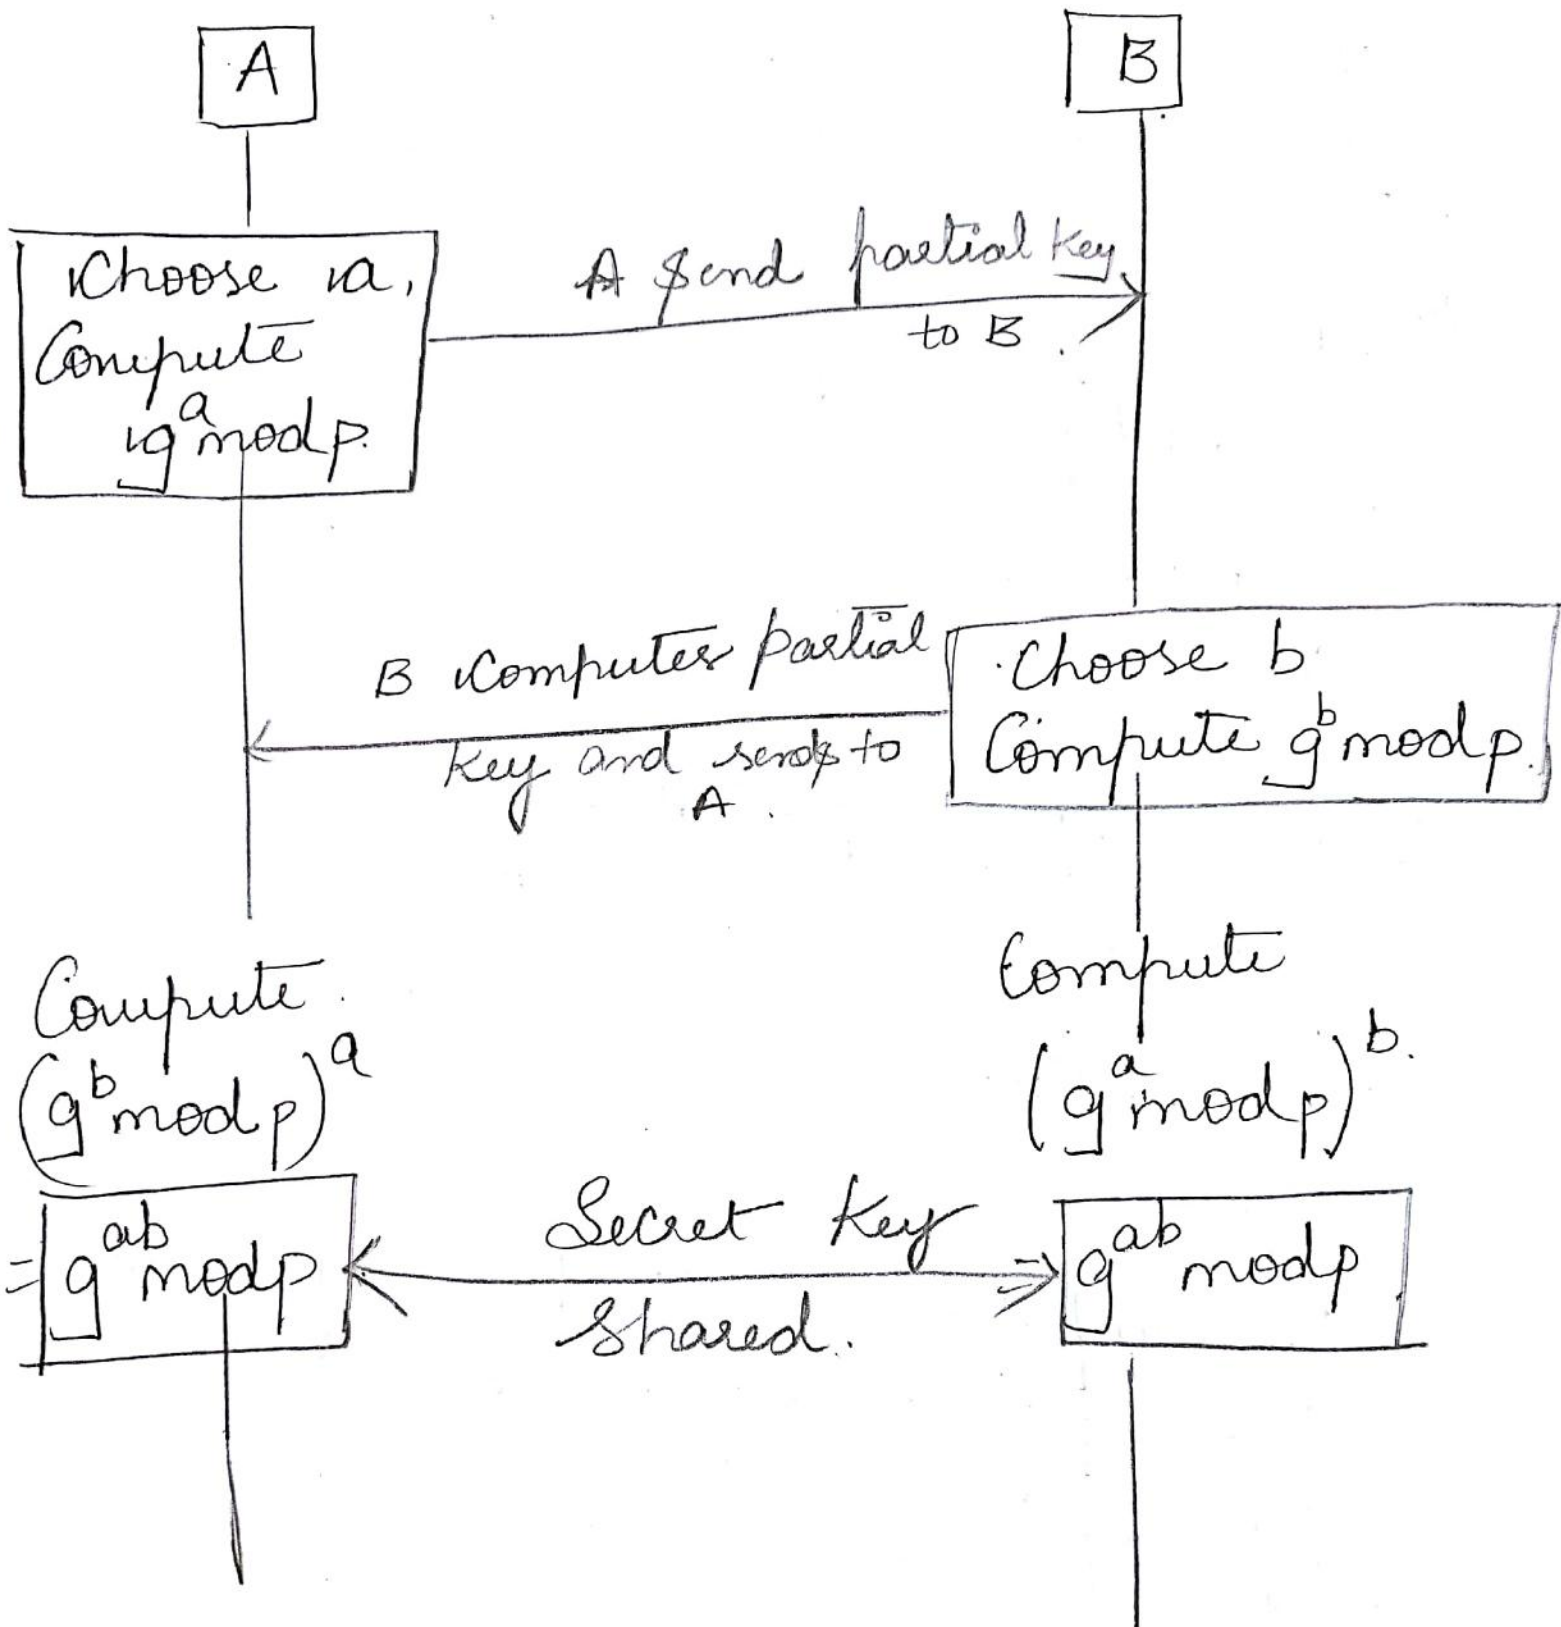 A
B
Choose a,
Compute
g^a mod p.
A send partial key
to B.
B computes partial
key and sends to
A.
Choose b
Compute g^b mod p.
Compute.
(g^b mod p)^a
Compute
(g^a mod p)^b.
= g^ab mod p
Secret key
Shared.
= g^ab mod p